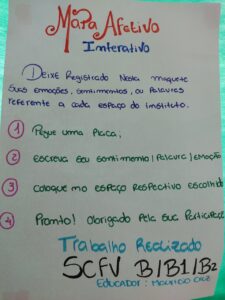 Mapa Afetivo
Interativo
Deixe Registrado Nesta maquete
suas emoções, sentimentos, ou palavras
referente a cada espaço do instituto.
1 Pegue uma placa;
2 Escreva seu sentimento/palavra/emoção
3 Coloque no espaço respectivo escolhido
4 Pronto! Obrigado pela sua Participação
Trabalho Realizado
SCFV B/B1/B2
EDUCADOR: